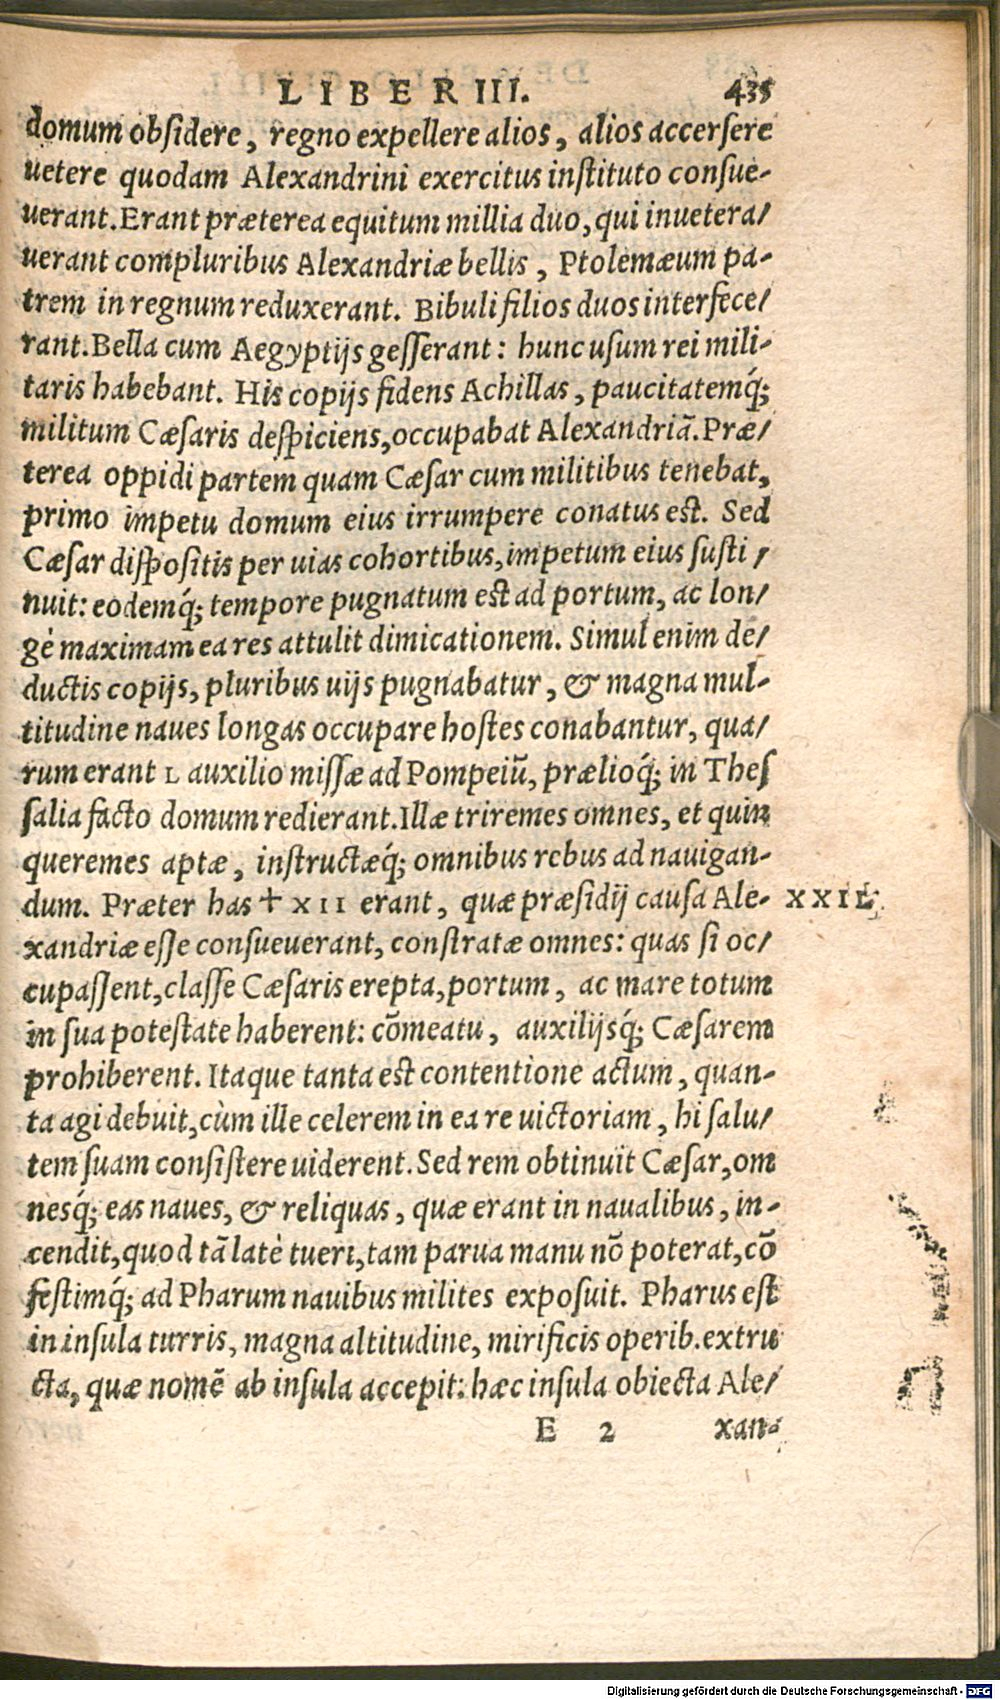 LIBER III. 435
domum obsidere, regno expellere alios, alios accersere
uetere quodam Alexandrini exercitus instituto consue-
uerant. Erant præterea equitum millia duo, qui inuetera/
uerant compluribus Alexandriæ bellis, Ptolemæum pa-
trem in regnum reduxerant. Bibuli filios duos interfece/
rant. Bella cum Aegyptijs gesserant: hunc usum rei mili-
taris habebant. His copijs fidens Achillas, paucitatemq́;
militum Cæsaris despiciens, occupabat Alexandriã. Præ/
terea oppidi partem quam Cæsar cum militibus tenebat,
primo impetu domum eius irrumpere conatus est. Sed
Cæsar dispositis per uias cohortibus, impetum eius susti/
nuit: eodemq́; tempore pugnatum est ad portum, ac lon/
gè maximam ea res attulit dimicationem. Simul enim de/
ductis copijs, pluribus uijs pugnabatur, & magna mul-
titudine naues longas occupare hostes conabantur, qua/
rum erant L auxilio missæ ad Pompeiũ, prælioq́; in Thes
salia facto domum redierant. Illæ triremes omnes, et quin
queremes aptæ, instructæq́; omnibus rebus ad nauigan-
dum. Præter has † XII erant, quæ præsidij causa Ale- XXII.
xandriæ esse consueuerant, constratæ omnes: quas si oc/
cupassent, classe Cæsaris erepta, portum, ac mare totum
in sua potestate haberent: cõmeatu, auxilijsq́; Cæsarem
prohiberent. Itaque tanta est contentione actum, quan-
ta agi debuit, cùm ille celerem in ea re uictoriam, hi salu/
tem suam consistere uiderent. Sed rem obtinuit Cæsar, om
nesq́; eas naues, & reliquas, quæ erant in naualibus, in-
cendit, quod tã latè tueri, tam parua manu nõ poterat, cõ
festimq́; ad Pharum nauibus milites exposuit. Pharus est
in insula turris, magna altitudine, mirificis operib. extru
cta, quæ nomẽ ab insula accepit: hæc insula obiecta Ale/
E 2 xan-
Digitalisierung gefördert durch die Deutsche Forschungsgemeinschaft - DFG